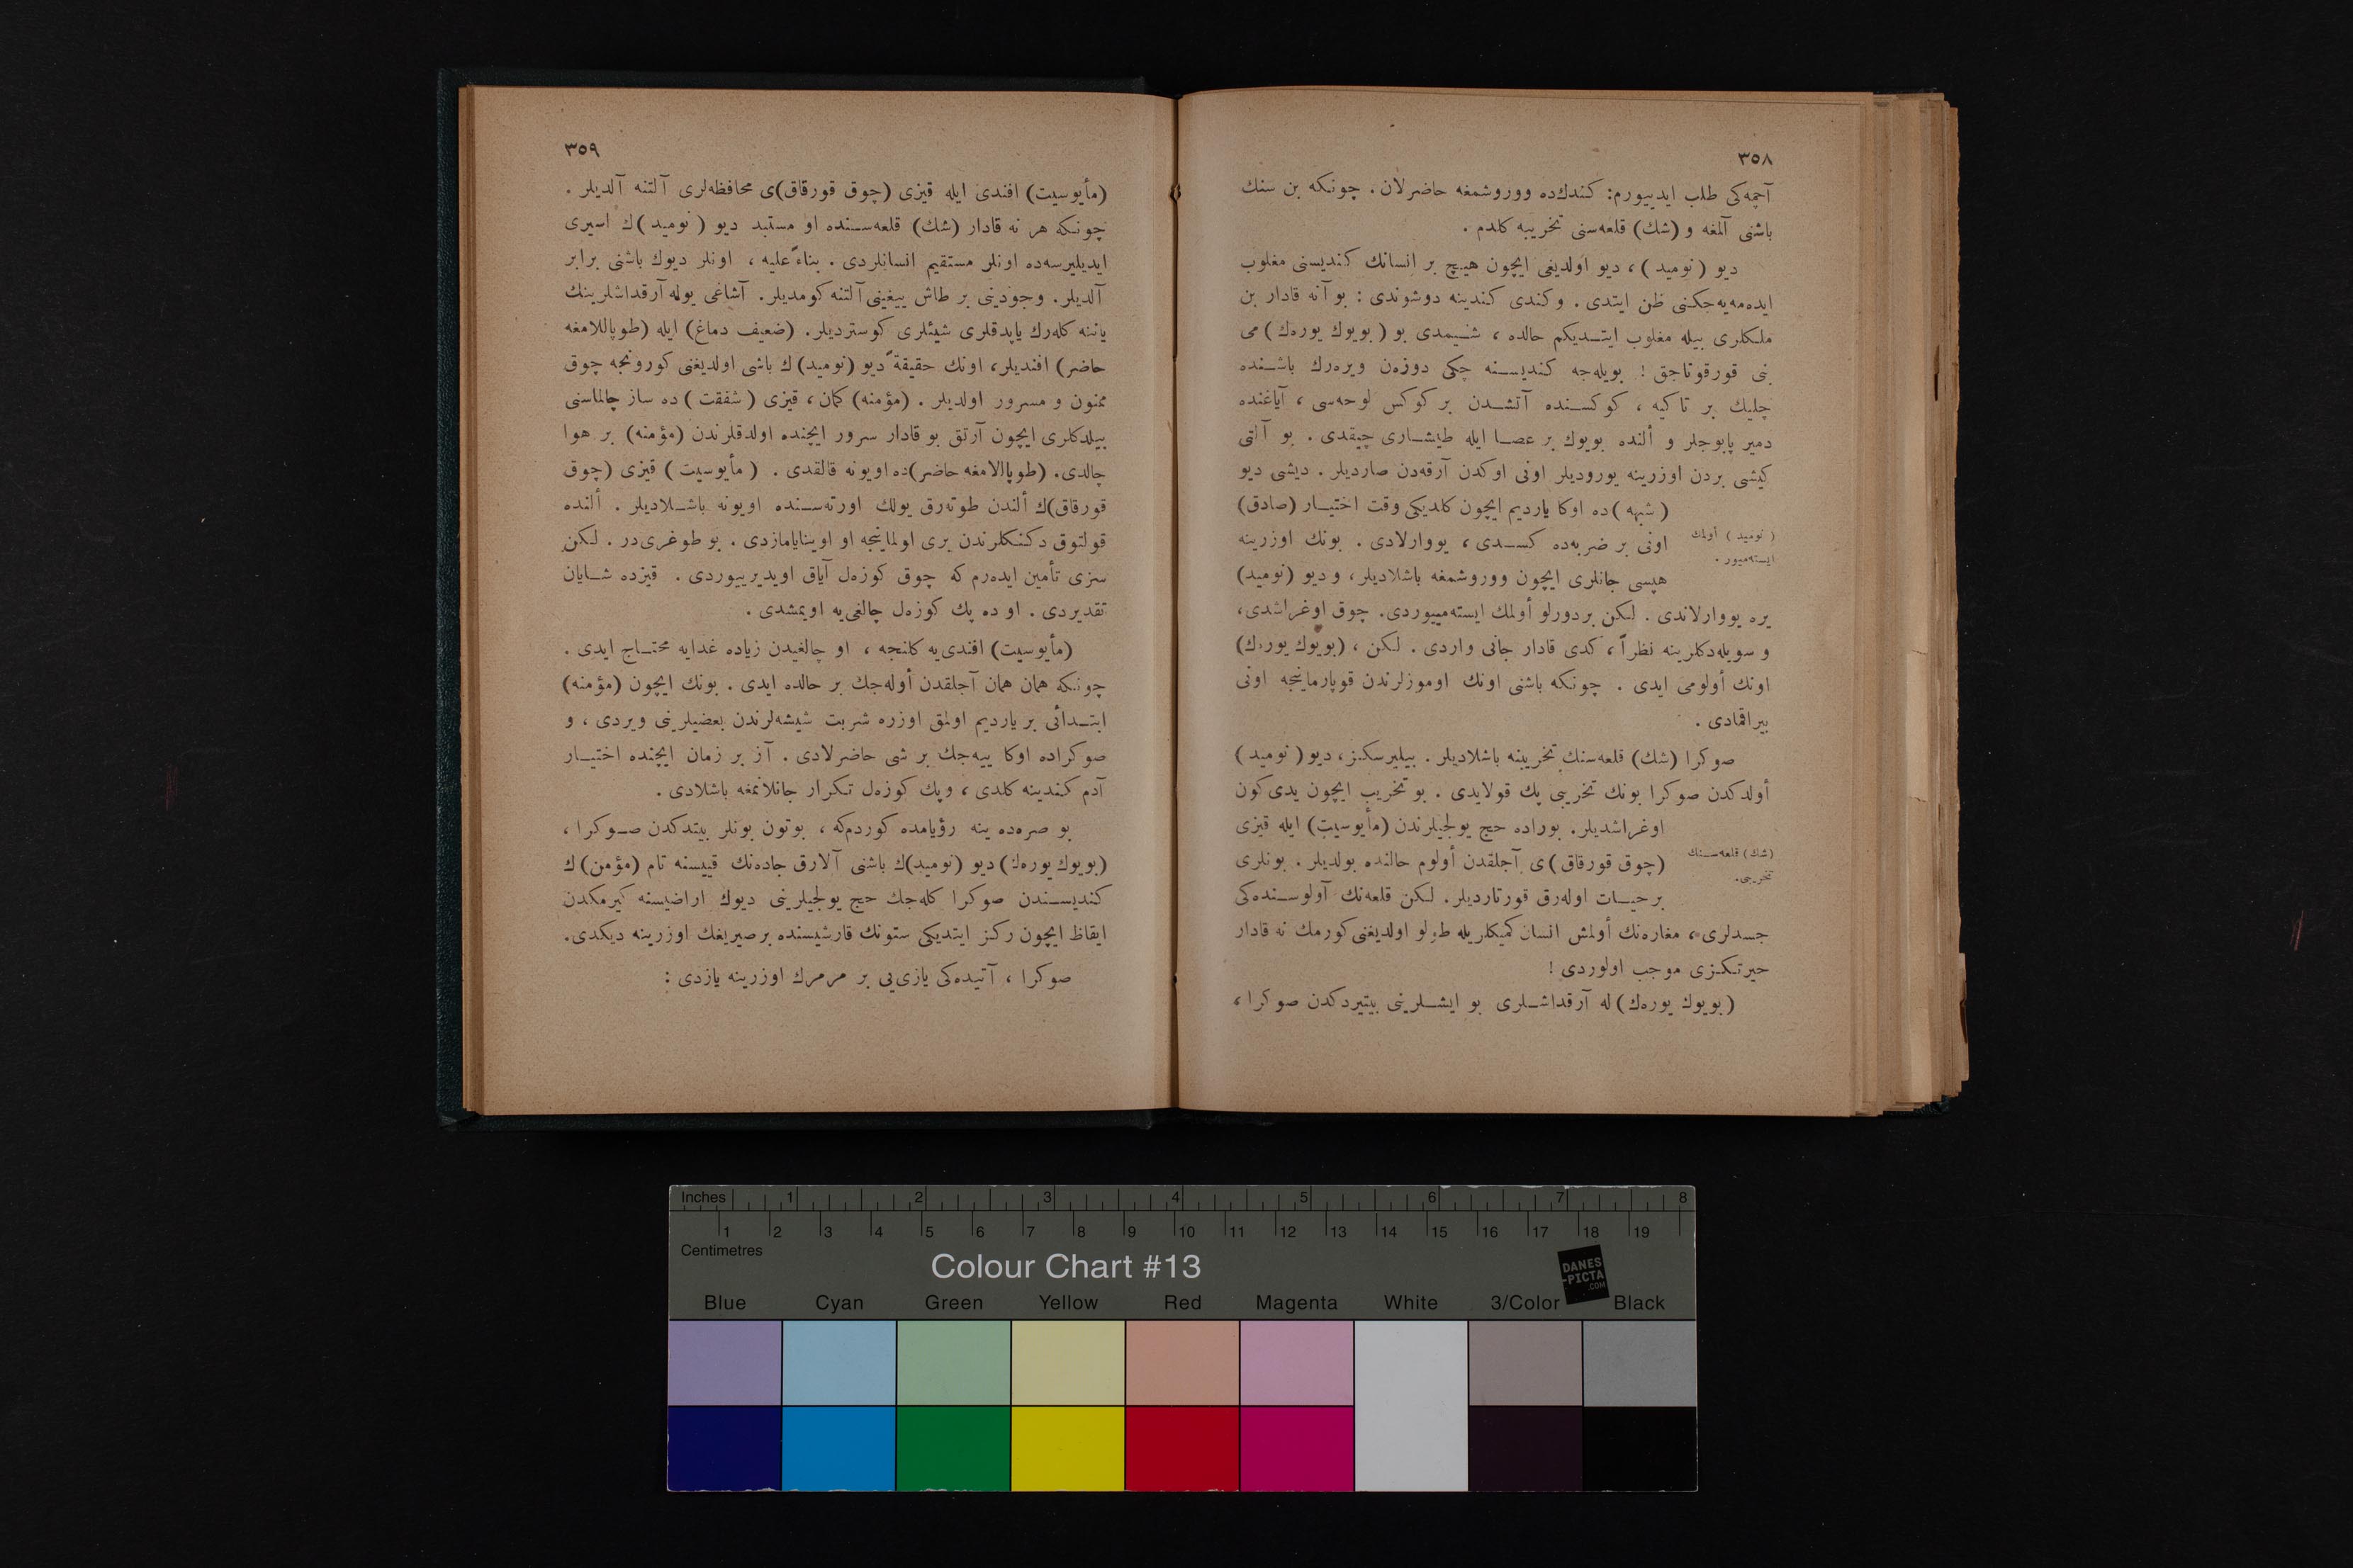 ٣٥٨
آچمه‌كی طلب ايدييورم: كندك‌ده ووروشمغه حاضرلان. چونكه بن سنك
باشنی آلمغه و (شك) قلعه‌سنی تخريبه كلدم.
ديو (نوميد)، ديو اولديغی ايچون هيچ بر انسانك كنديسنی مغلوب
ايده‌مه‌يه‌جكنی ظن ايتدی. و كندی كندينه دوشوندی: بو آنه قادار بن
ملكلری بيله مغلوب ايتديكم حالده، شيمدی بو (بويوك يوره‌ك) می
بنی قورقوتاجق! بويله‌جه كنديسنه چكی دوزه‌ن ويره‌رك باشنده
چليك بر تاكيه، كوكسنده آتشدن بر كوكس لوحه‌سی، آياغنده
دمير پابوجلر و ألنده بويوك بر عصا ايله طيشاری چيقدی. بو آلتی
كيشی بردن اوزرينه يوروديلر اونی اوكدن آرقه‌دن صارديلر. ديشی ديو
(شبهه) ده اوكا يارديم ايچون كلديكی وقت اختيار (صادق)
(نوميد) أولمك
ايسته‌ميور.
اونی بر ضربه‌ده كسدی، يووارلادی. بونك اوزرينه
هپسی جانلری ايچون ووروشمغه باشلاديلر، و ديو (نوميد)
يره يووارلاندی. لكن بردورلو أولمك ايسته‌مييوردی. چوق اوغراشدی،
و سويله‌دكلرينه نظراً، كدی قادار جانی واردی. لكن، (بويوك يوره‌ك)
اونك أولومی ايدی. چونكه باشنی اونك اوموزلرندن قوپارماينجه اونی
بيراقمادی.
صوكرا (شك) قلعه‌سنك تخريبنه باشلاديلر. بيليرسكز، ديو (نوميد)
أولدكدن صوكرا بونك تخريبی پك قولايدی. بو تخريب ايچون يدی كون
اوغراشديلر. بوراده حج يولجيلرندن (مأيوسيت) ايله قيزی
(شك) قلعه‌سنك
تخريبی.
(چوق قورقاق) ی آجلقدن أولوم حالنده بولديلر. بونلری
برحيات اوله‌رق قورتارديلر. لكن قلعه‌نك آولوسنده‌كی
جسدلری، مغاره‌نك أولمش انسان كميكلريله طولو اولديغنی كورمك نه قادار
حيرتكزی موجب اولوردی!
(بويوك يوره‌ك) له آرقداشلری بو ايشلرينی بيتيردكدن صوكرا،
٣٥٩
(مأيوسيت) افندی ايله قيزی (چوق قورقاق)ی محافظه‌لری آلتنه آلديلر.
چونكه هر نه قادار (شك) قلعه‌سنده او مستبد ديو (نوميد)ك اسيری
ايديليرسه‌ده اونلر مستقيم انسانلردی. بناءً عليه، اونلر ديوك باشنی برابر
آلديلر. وجودينی بر طاش ييغينی آلتنه كومديلر. آشاغی يوله آرقداشلرينك
ياننه كله‌رك ياپدقلری شيئلری كوسترديلر. (ضعيف دماغ) ايله (طوپاللامغه
حاضر) افنديلر، اونك حقيقةً ديو (نوميد)ك باشی اولديغنی كورونجه چوق
ممنون و مسرور اولديلر. (مؤمنه) كمان، قيزی (شفقت) ده ساز چالماسنی
بيلدكلری ايچون آرتق بو قادار سرور ايچنده اولدقلرندن (مؤمنه) بر هوا
چالدی. (طوپاللامغه حاضر)ده اويونه قالقدی. (مأيوسيت) قيزی (چوق
قورقاق)ك ألندن طوته‌رق يولك اورته‌سنده اويونه باشلاديلر. ألنده
قولتوق دكنكلرندن بری اولماينجه او اوينايامازدی. بو طوغری‌در. لكن
سزی تأمين ايده‌رم كه چوق كوزه‌ل آياق اويديرييوردی. قيزده شايان
تقديردی. او ده پك كوزه‌ل چالغی‌يه اويمشدی.
(مأيوسيت) افندی‌يه كلنجه، او چالغيدن زياده غدايه محتاج ايدی.
چونكه همان همان آجلقدن أوله‌جك بر حالده ايدی. بونك ايچون (مؤمنه)
ابتدائی بر يارديم اولمق اوزره شربت شيشه‌لرندن بعضيلرينی ويردی، و
صوكراده اوكا ييه‌جك بر شی حاضرلادی. آز بر زمان ايچنده اختيار
آدم كندينه كلدی، وپك كوزه‌ل تكرار جانلانمغه باشلادی.
بو صره‌ده ينه رؤيامده كوردم‌كه، بوتون بونلر بيتدكدن صوكرا،
(بويوك يوره‌ك) ديو (نوميد)ك باشنی آلارق جاده‌نك قييسنه تام (مؤمن) ك
كنديسندن صوكرا كله‌جك حج يولجيلرينی ديوك اراضيسنه كيرمكدن
ايقاظ ايچون ركز ايتديكی ستونك قارشيسنده بر صيريغك اوزرينه ديكدی.
صوكرا، آتيده‌كی يازی‌يی بر مرمرك اوزرينه يازدی:
Inches 1 2 3 4 5 6 7 8
1 2 3 4 5 6 7 8 9 10 11 12 13 14 15 16 17 18 19
Centimetres
Colour Chart #13
DANES
-PICTA
.COM
Blue Cyan Green Yellow Red Magenta White 3/Color Black